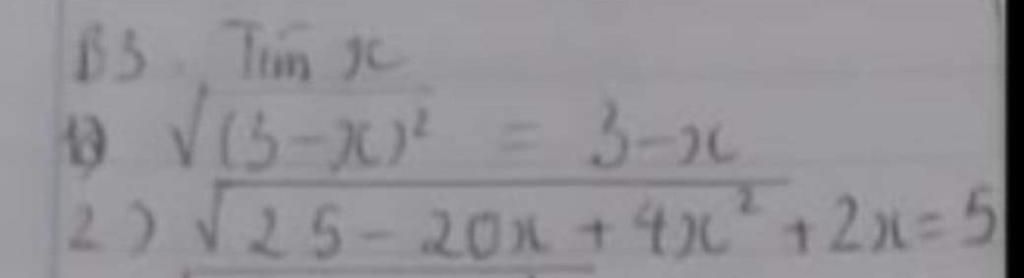 B3. Tìm x
1) √(3-x)² = 3-x
2) √25-20x+4x² + 2x = 5